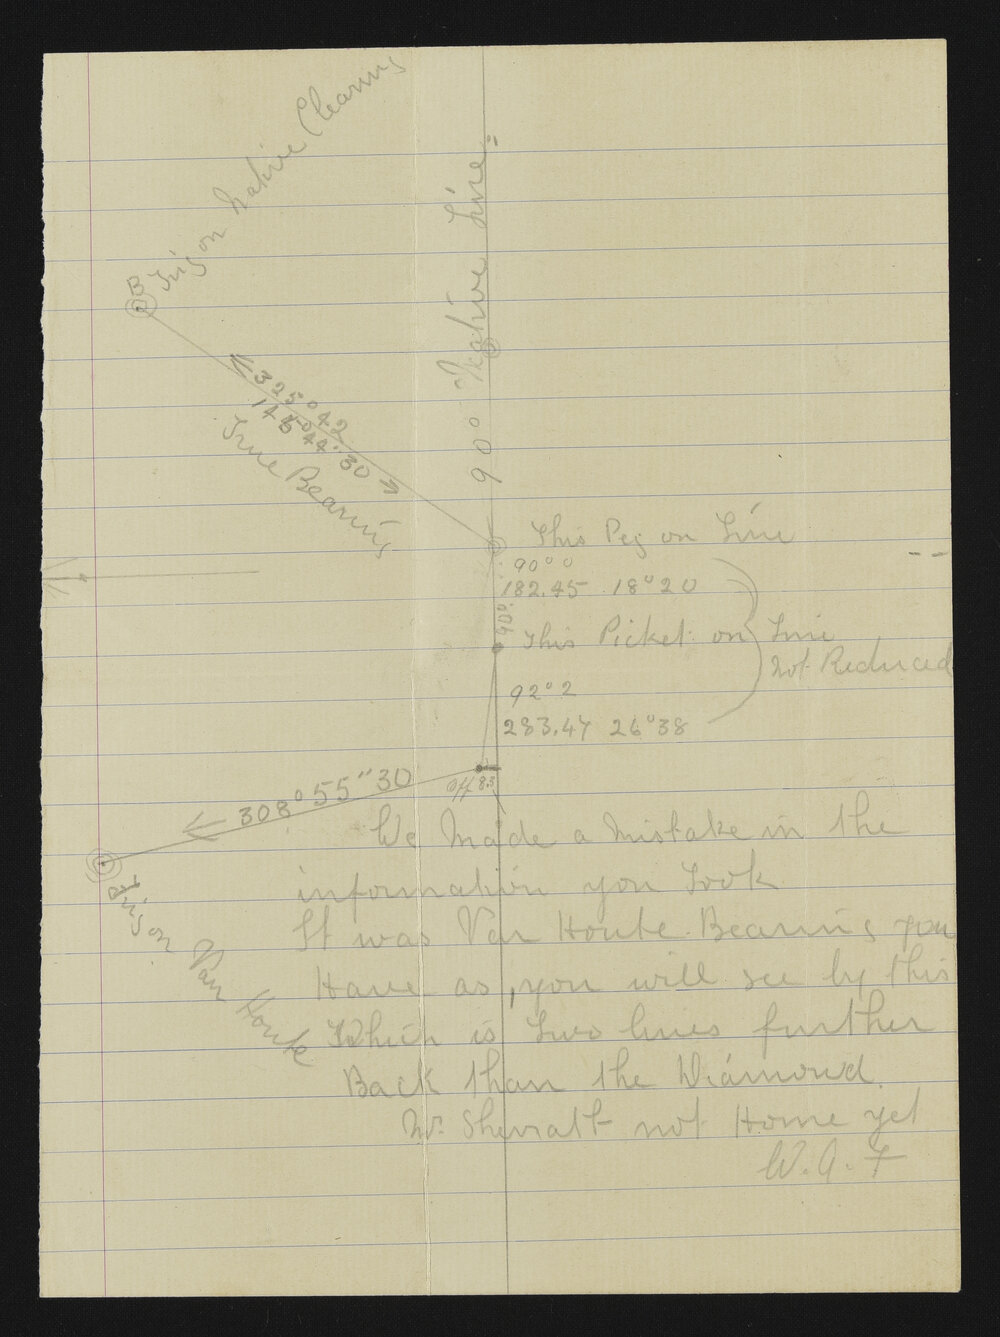 Trig on Native Clearing
B
90° Native Line.
325° 42
145° 44" 30
True Bearing
This Peg on Line
90° 0
182.45 18° 20
40°
This Picket on Line
not Reduced
92° 2
283.47 26° 38
308° 55" 30
off 83
Trig on Van Houte
We Made a Mistake in the
information you Took
It was Van Houte Bearing you
Have as, you will see by this
Which is Two lines further
Back than the Diamond.
Mr. Sherratt not Home yet
W. A. F